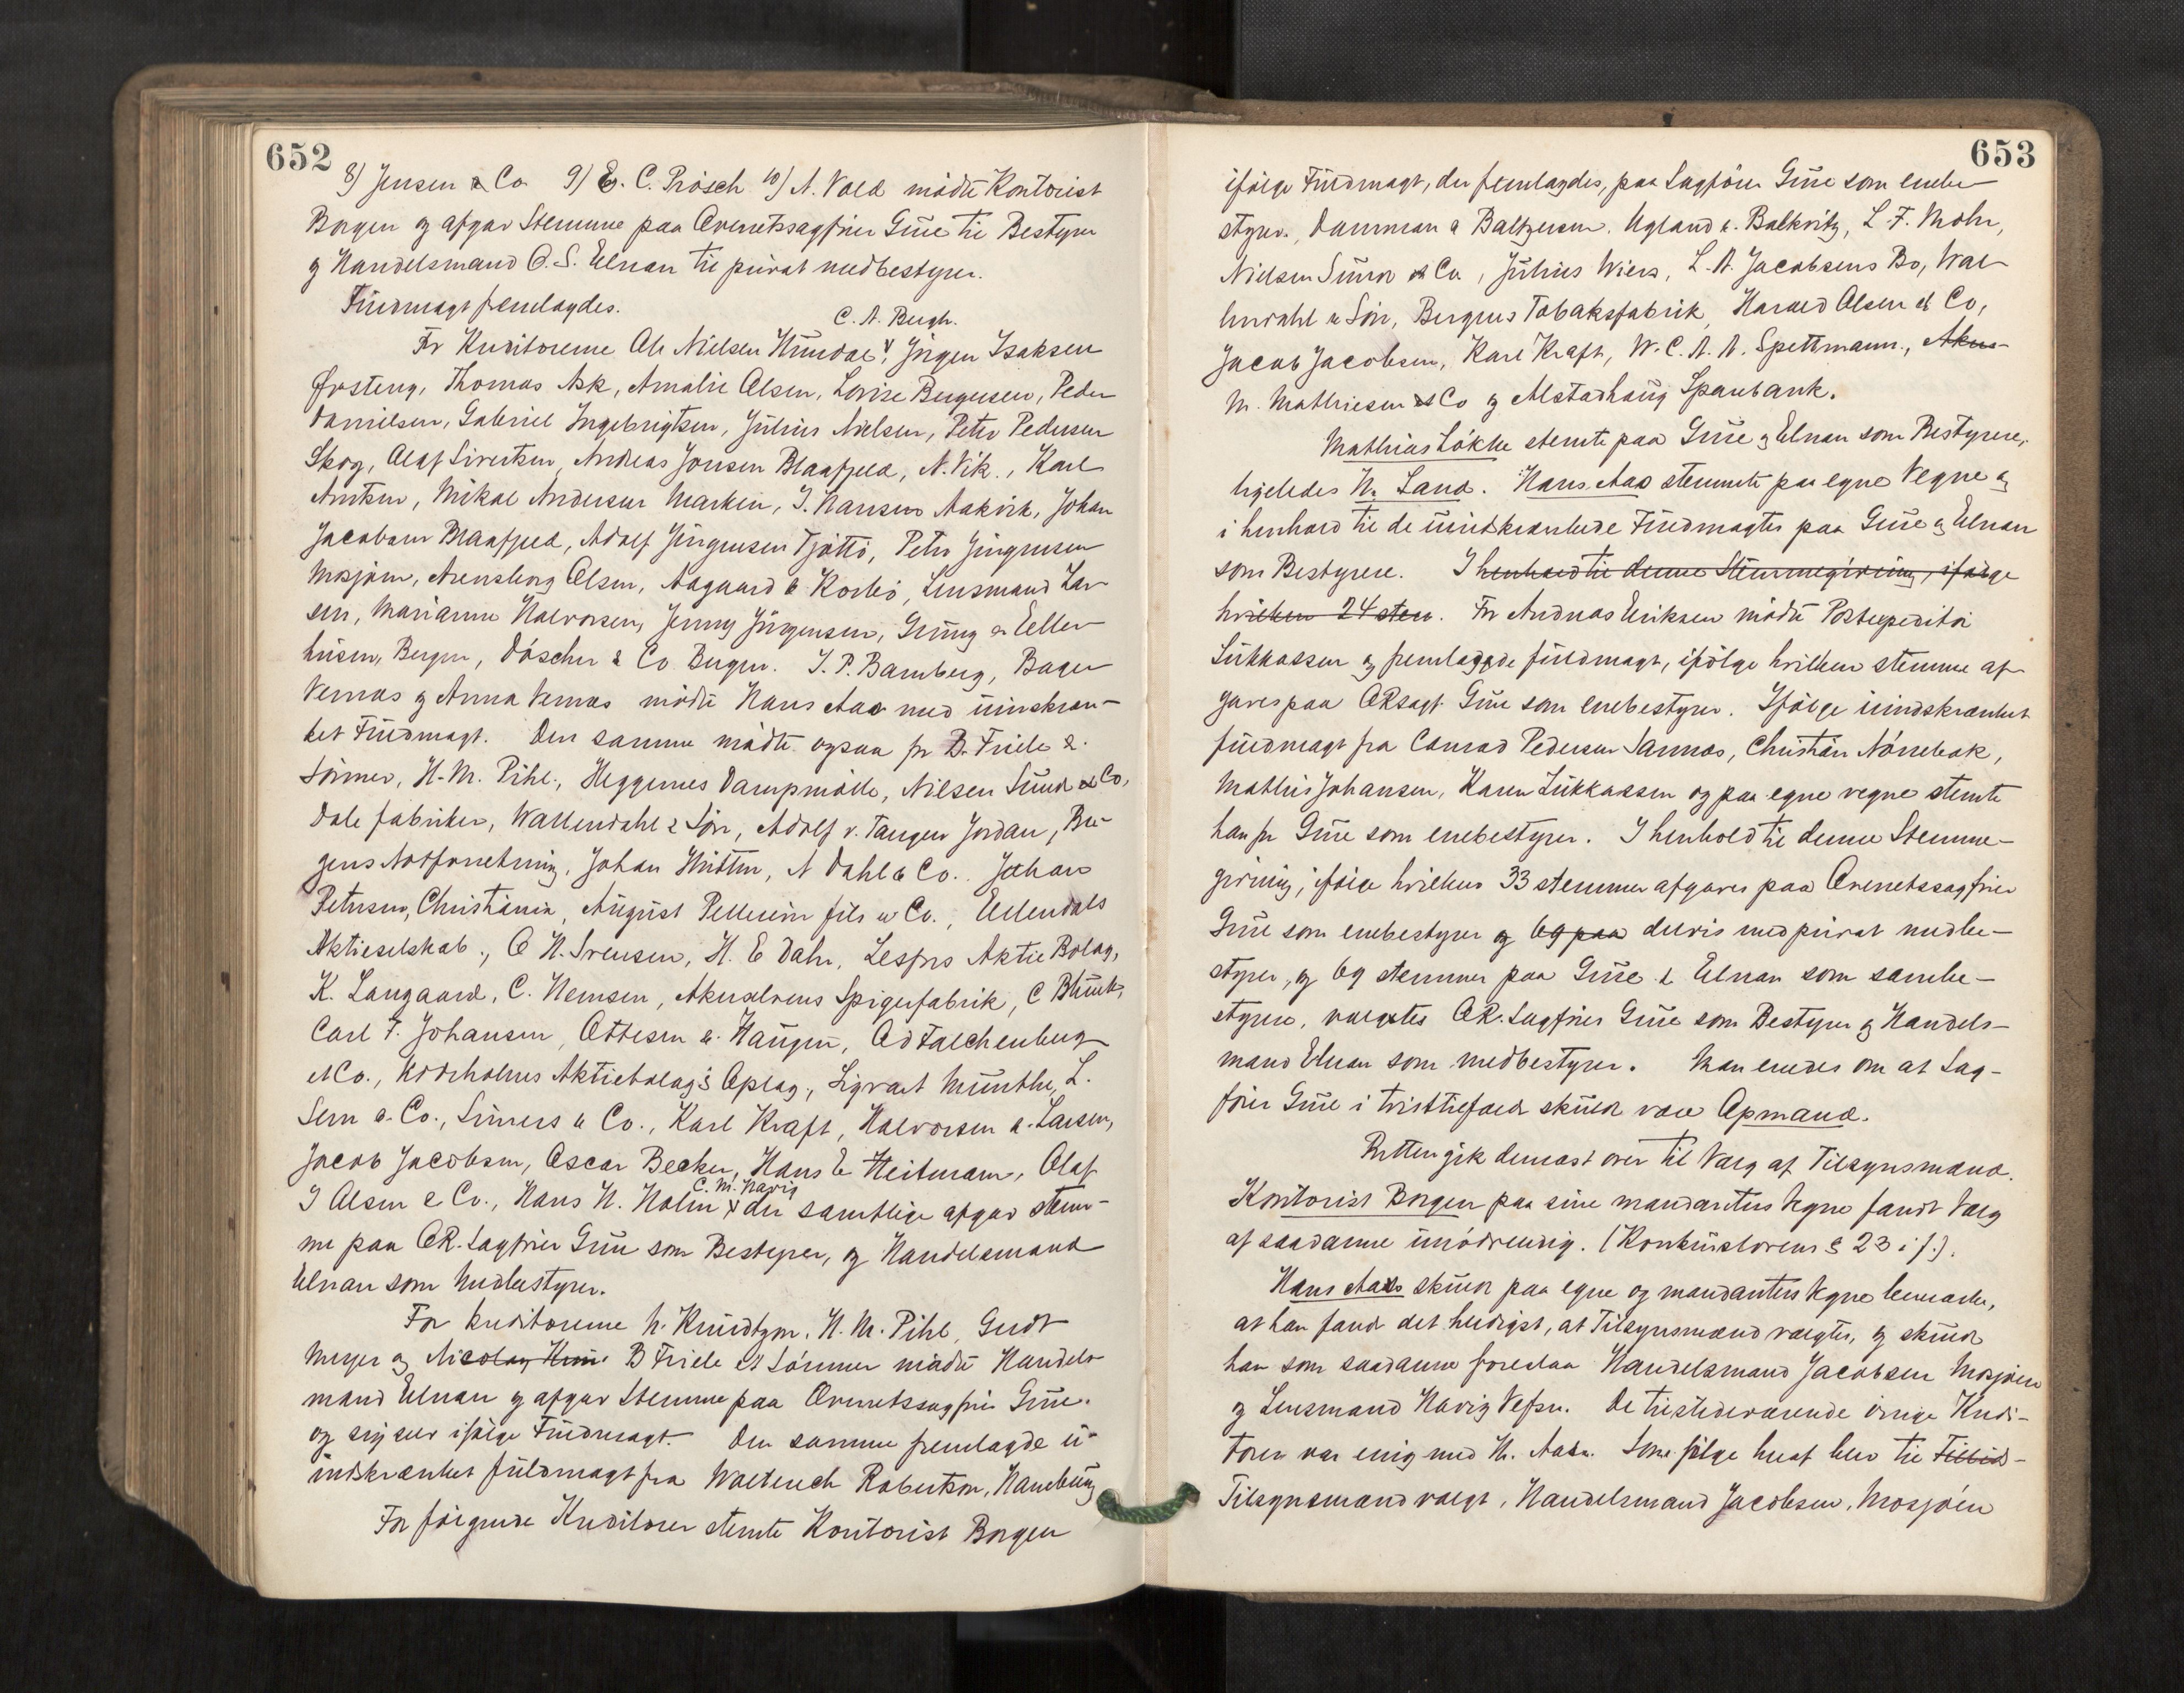 652
8) Jensen & Co 9) E. C. Prösch 10) A. Vold mödte Kontorist
Borgen og afgav Stemme paa Overretssagfører Grue til Bestyrer
og Handelsmand O. S. Elnan til privat medbestyrer.
Fuldmagt fremlagdes.
C. A. Bergh.
For Kreditorerne Ole Nielsen Hundal, Jörgen Isaksen
Örsteng, Thomas Ask, Amalie Olsen, Lovise Bergersen, Peder
Danielsen, Gabriel Ingebrigtsen, Julius Nielsen, Peter Pedersen
Skog, Olaf Sivertsen, Andreas Jonsen Blaafjeld, N. Vik., Karl
Arntsen, Mikal Andersen Marken, I. Hansens Aakvik, Johan
Jacobsen Blaafjeld, Adolf Jörgensen Tjöttö, Peter Jörgensen
Mosjöen, Arensborg Olsen, Aagaard & Korbö, Lensmand Lar
sen, Marianne Halvorsen, Jenny Jörgensen, Gruny & Eller
husen, Bergen, Döscher & Co Bergen. I. P. Bamberg, Bager
Vernes og Anna Vernes mödte Hans Aas med uindskræn-
ket Fuldmagt. Den samme mödte ogsaa for B. Friele &
Sönner, H. M. Pihl., Heggernes Dampmölle, Nilsen Sund & Co,
Dale fabriker, Wallendahl & Sön, Adolf v. Tangen Jordan, Ber
gens Notforretning, Johan Hritten, A Dahl & Co. Johan
Petersen, Christiania, August Pellerin fils & Co., Ellendals
Aktieselskab., O H. Svensen, H. E Dahr, Lesjös Aktie Bolag,
K. Langaard, C. Nemsen, Akerselvens Spigerfabrik, C Blunk,
Carl F. Johansen, Ottesen & Haugen, Ad Falchenberg
& Co., Korsholms Aktiebolag's Oplag, Sigvart Munthe, L.
Sem & Co., Siniers & Co., Karl Kraft, Halvorsen & Larsen,
Jacob Jacobsen, Oscar Becker, Hans E Heitmann, Olaf
C. M. Havig
I Olsen & Co., Hans H. Holm der samtlige afgav stem-
me paa OR. Sagfører Grue som Bestyrer, og Handelsmand
Elnan som Medbestyrer.
For kreditorerne H. Knudtzon, H. M. Pihl, Gerdt
Meyer og Nicolay Knu B Friele & Sönner mödte Handels
mand Elnan og afgav Stemme paa Overretssagfører Grue
og sig selv ifölge Fuldmagt. Den samme fremlagde u
indskrænket fuldmagt fra Wolterech Robertson, Hamburg
For fölgende Kreditorer stemte Kontorist Borgen
653
ifölge Fuldmagt, der fremlagdes, paa Sagförer Grue som enebe
styrer, Damman & Baltzersen. Ugland & Balkvitz, L. F. Mohr,
Nielsen Sund & Co, Julius Wiers, L. A. Jacobsens Bo, Wal
lendahl & Sön, Bergens Tobaksfabrik, Harald Olsen & Co,
Jacob Jacobsen, Karl Kraft, W. C. A. A. Spettmann., Akers
M. Mathiesen & Co og Alstadhaug Sparebank.
Mathias Lökke stemte paa Grue og Elnan som Bestyrere,
ligeledes N. Land. Hans Aas stemmte paa egne Vegne og
i henhold til de uindskrænkede Fuldmagter paa Grue og Elnan
som Bestyrere. I henhold til denne Stemmegivning, ifölge
hvilken 24 stem. For Andreas Eriksen mödte Postexpeditör
Lukkassen og fremlagde fuldmagt, ifölge hvilken stemme af
gaves paa ORsagf. Grue som enebestyrer. Ifölge uindskrænket
fuldmagt fra Conrad Pedersen Sannas, Christian Nörrebak,
Mathis Johansen, Karen Lukkassen og paa egne vegne stemte
han for Grue som enebestyrer. I henhold til denne Stemme-
givning, ifölge hvilken 33 stemmer afgaves paa Overretssagfører
Grue som enebestyrer og 69 paa delvis med privat medbe-
styrer, og 69 stemmer paa Grue & Elnan som sambe-
styrere, valgtes OR. Sagfører Grue som Bestyrer og Handels-
mand Elnan som medbestyrer. Man enedes om at Sag-
förer Grue i tvisttilfælde skulde være Opmand.
Retten gik dernæst over til Valg af Tilsynsmænd.
Kontorist Borgen paa sine mandanters Vegne fandt Valg
af saadanne unödvendig. (Konkurslovens § 23 i f.).
Hans Aas skulde paa egne og mandanters Vegne bemærke,
at han fandt det heldigst, at Tilsynsmænd valgtes, og skulde
han som saadanne foreslaa Handelsmand Jacobsen Mosjöen
og Lensmand Havig Vefsn. De tilstedeværende övrige Kredi-
torer var enig med H. Aas. Som fölge heraf blev til Tillids-
Tilsynsmænd valgt, Handelsmand Jacobsen, Mosjöen